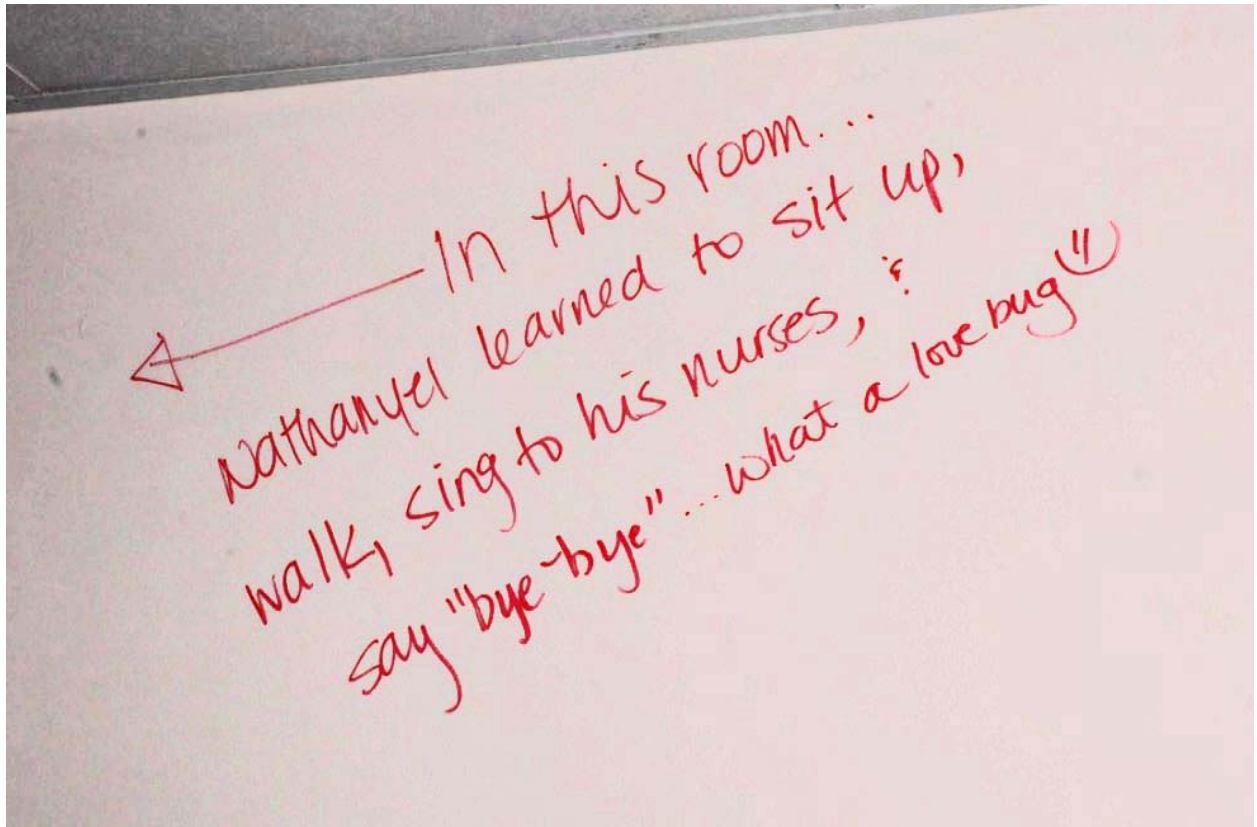 In this room...
Nathanyel learned to sit up,
walk, sing to his nurses, &
say "bye-bye"...what a love bug